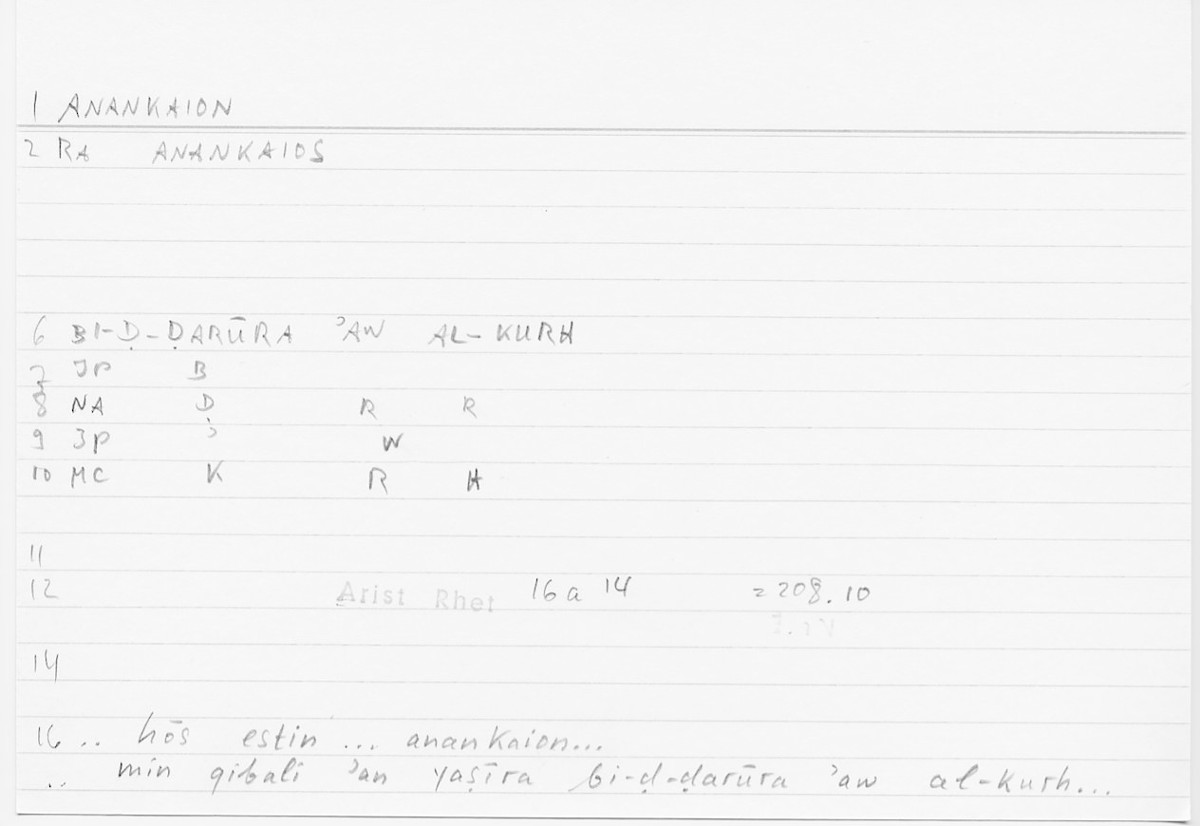 1 ANANKAION
2 RA ANANKAIOS
6 BI-Ḍ-ḌARŪRA ʾAW AL-KURH
7 JP B
8 NA Ḍ R R
9 JP ʾ W
10 MC K R H
11
12 Arist Rhet 16a 14 = 208.10
14
16 .. hōs estin ... anankaion...
.. min qibali ʾan yaṣīra bi-ḍ-ḍarūra ʾaw al-kurh...